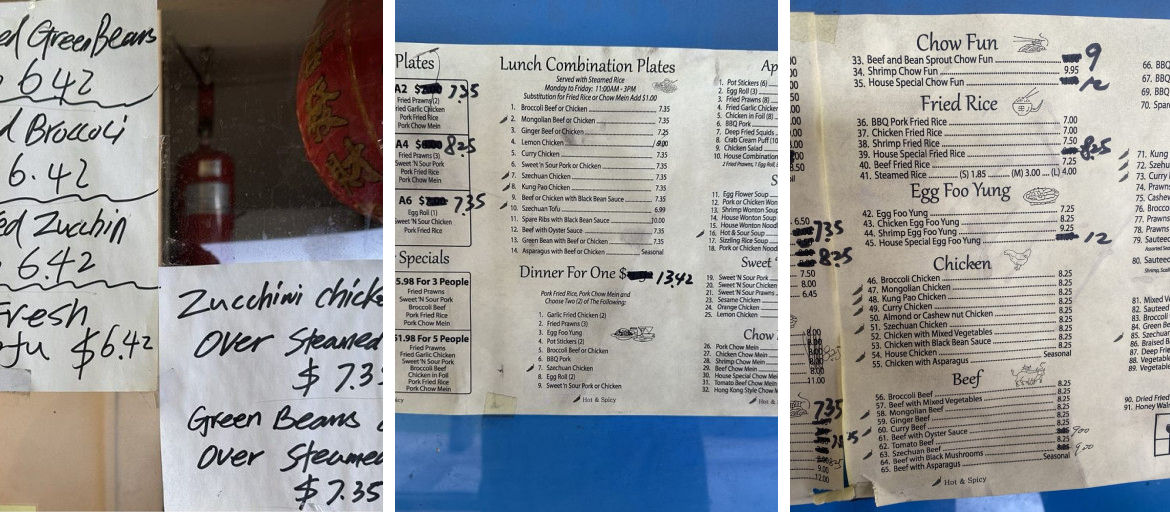 Green Beans
6.42
Broccoli
6.42
Zucchin
6.42
Fresh
$6.42
Zucchini chick
Over Steamed
$7.3
Green Beans
Over Steamed
$7.35
Plates
A2 $ 7.35
Fried Prawns(2)
Fried Garlic Chicken
Pork Fried Rice
Pork Chow Mein
A4 $ 8.25
Fried Prawns (3)
Sweet 'N Sour Pork
Pork Fried Rice
Pork Chow Mein
A6 $ 7.35
Egg Roll (1)
Sweet 'N Sour Chicken
Pork Fried Rice
Pork Chow Mein
Specials
5.98 For 3 People
Fried Prawns
Sweet 'N Sour Pork
Broccoli Beef
Pork Fried Rice
Pork Chow Mein
51.98 For 5 People
Fried Prawns
Fried Garlic Chicken
Sweet 'N Sour Pork
Broccoli Beef
Chicken in Foil
Pork Fried Rice
Pork Chow Mein
Lunch Combination Plates
Served with Steamed Rice
Monday to Friday: 11:00AM - 3PM
Substitution for Fried Rice or Chow Mein Add $1.00
1. Broccoli Beef or Chicken 7.35
2. Mongolian Beef or Chicken 7.35
3. Ginger Beef or Chicken 7.25
4. Lemon Chicken
5. Curry Chicken 7.35
6. Sweet 'n Sour Pork or Chicken 7.35
7. Szechuan Chicken 7.35
8. Kung Pao Chicken 7.35
9. Beef or Chicken with Black Bean Sauce 7.35
10. Szechuan Tofu 6.99
11. Spare Ribs with Black Bean Sauce 10.00
12. Beef with Oyster Sauce 7.35
13. Green Bean with Beef or Chicken 7.35
14. Asparagus with Beef or Chicken Seasonal
Dinner For One $ 13.42
Pork Fried Rice, Pork Chow Mein and
Choose Two (2) of The Following:
1. Garlic Fried Chicken (2)
2. Fried Prawns (3)
3. Egg Foo Yung
4. Pot Stickers (2)
5. Broccoli Beef or Chicken
6. BBQ Pork
7. Szechuan Chicken
8. Egg Roll (2)
9. Sweet 'n Sour Pork or Chicken
Hot & Spicy
Ap
1. Pot Stickers (6)
2. Egg Roll (3)
3. Fried Prawns (8)
4. Fried Garlic Chicken
5. Chicken in Foil (8)
6. BBQ Pork
7. Deep Fried Squids
8. Crab Cream Puff (10
9. Chicken Salad
10. House Combination
S
11. Egg Flower Soup
12. Pork or Chicken Won
13. Shrimp Wonton Soup
14. House Wonton Soup
15. House Wonton Nood
16. Hot & Sour Soup
17. Sizzling Rice Soup
18. Pork or Chicken Nood
Sweet '
19. Sweet 'N Sour Pork
20. Sweet 'N Sour Chicken
21. Sweet 'N Sour Prawns
23. Sesame Chicken
24. Orange Chicken
25. Lemon Chicken
Chow
26. Pork Chow Mein
27. Chicken Chow Mein
28. Shrimp Chow Mein
29. Beef Chow Mein
30. House Special Chow Me
31. Tomato Beef Chow Mein
32. Hong Kong Style Chow M
Hot &
Chow Fun
33. Beef and Bean Sprout Chow Fun 9
34. Shrimp Chow Fun 9.95
35. House Special Chow Fun 12
Fried Rice
36. BBQ Pork Fried Rice 7.00
37. Chicken Fried Rice 7.00
38. Shrimp Fried Rice 7.50
39. House Special Fried Rice 8.25
40. Beef Fried Rice 7.25
41. Steamed Rice (S) 1.85 (M) 3.00 (L) 4.00
Egg Foo Yung
42. Egg Foo Yung 7.25
43. Chicken Egg Foo Yung 8.25
44. Shrimp Egg Foo Yung 9.25
45. House Special Egg Foo Yung 12
Chicken
46. Broccoli Chicken 8.25
47. Mongolian Chicken 8.25
48. Kung Pao Chicken 8.25
49. Curry Chicken 8.25
50. Almond or Cashew nut Chicken 8.25
51. Szechuan Chicken 8.25
52. Chicken with Mixed Vegetables 8.25
53. Chicken with Black Bean Sauce 8.25
54. House Chicken 8.25
55. Chicken with Asparagus Seasonal
Beef
56. Broccoli Beef 8.25
57. Beef with Mixed Vegetables 8.25
58. Mongolian Beef 8.25
59. Ginger Beef 8.25
60. Curry Beef 8.25
61. Beef with Oyster Sauce 8.25
62. Tomato Beef 9.00
63. Szechuan Beef 8.25
64. Beef with Black Mushrooms 9.00
65. Beef with Asparagus Seasonal
Hot & Spicy
6.50
7.35
8.25
7.50
8.00
6.45
8.00
11.00
7.35
9.00
12.00
66. BBQ
67. BBQ
69. BBQ
70. Span
71. Kung
72. Szehu
73. Curry
74. Prawns
75. Cashew
76. Brocco
77. Prawns
78. Prawns
79. Sautee
80. Sauteed
81. Mixed
82. Sauteed
83. Broccol
84. Green
85. Szechuan
86. Braised
87. Deep Frie
88. Vegetable
89. Vegetabl
90. Dried Fried
91. Honey Waln